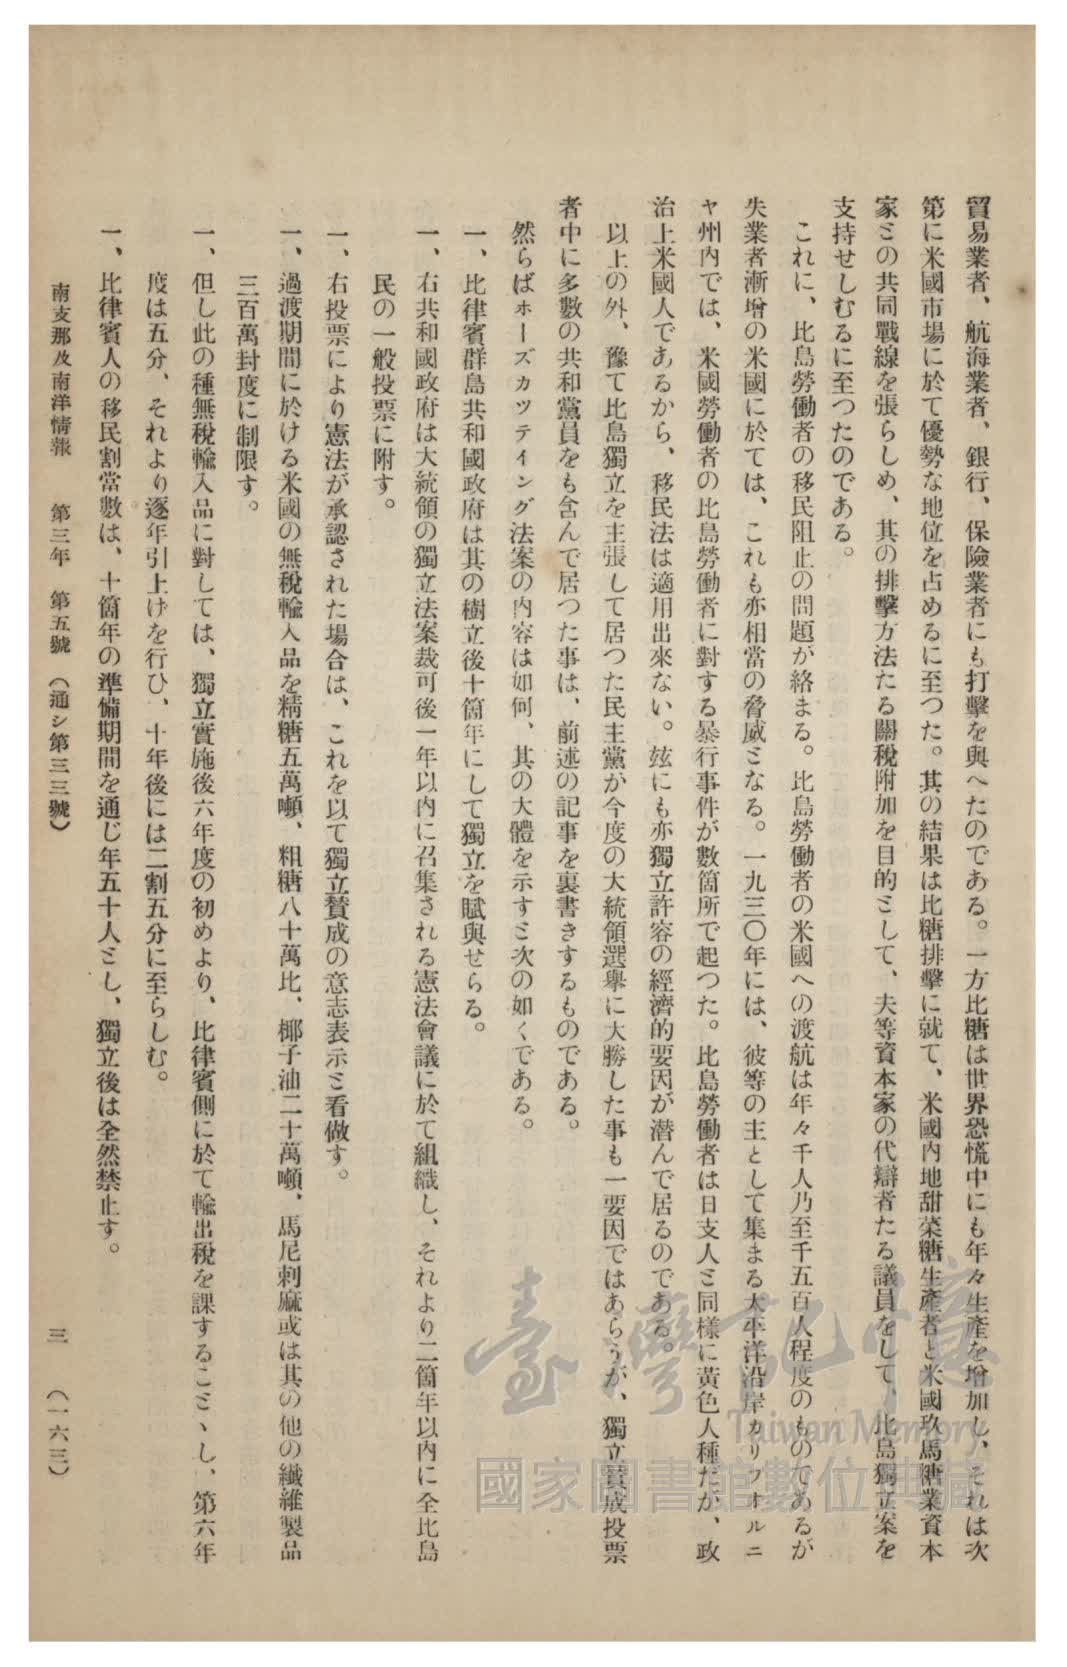 貿易業者、航海業者、銀行、保險業者にも打擊を與へたのである。一方比糖は世界恐慌中にも年々生產を增加し、それは次
第に米國市場に於て優勢な地位を占めるに至つた。其の結果は比糖排擊に就て、米國內地甜菜糖生產者と米國玖馬糖業資本
家ミの共同戰線を張らしめ、其の排擊方法たる關稅附加を目的ミして、夫等資本家の代辯者たる議員をして、比島獨立案を
支持せしむるに至つたのである。
これに、比島勞働者の移民阻止の問題が絡まる。比島勞働者の米國への渡航は年々千人乃至千五百人程度のものであるが
失業者漸增の米國に於ては、これも亦相當の脅威ミなる。一九三〇年には、彼等の主として集まる太平洋沿岸カリフオルニ
ヤ州內では、米國勞働者の比島勞働者に對する暴行事件が數箇所で起つた。比島勞働者は日支人ミ同樣に黃色人種だが、政
治上米國人であるから、移民法は適用出來ない。玆にも亦獨立許容の經濟的要因が潜んで居るのである。
以上の外、豫て比島獨立を主張して居つた民主黨が今度の大統領選擧に大勝した事も一要因ではあらうが、獨立贊成投票
者中に多數の共和黨員をも含んで居つた事は、前述の記事を裏書きするものである。
然らばホーズカツテイング法案の內容は如何、其の大體を示すミ次の如くである。
一、比律賓群島共和國政府は其の樹立後十箇年にして獨立を賦與せらる。
一、右共和國政府は大統領の獨立法案裁可後一年以內に召集される憲法會議に於て組織し、それより二箇年以內に全比島
民の一般投票に附す。
一、右投票により憲法が承認された場合は、これを以て獨立贊成の意志表示ミ看做す。
一、過渡期間に於ける米國の無稅輸入品を精糖五萬噸、粗糖八十萬比、椰子油二十萬噸、馬尼剌麻或は其の他の纖維製品
三百萬封度に制限す。
一、但し此の種無稅輸入品に對しては、獨立實施後六年度の初めより、比律賓側に於て輸出稅を課するこミヽし、第六年
度は五分、それより逐年引上げを行ひ、十年後には二割五分に至らしむ。
一、比律賓人の移民割當數は、十箇年の準備期間を通じ年五十人ミし、獨立後は全然禁止す。
南支那及南洋情報　第三年　第五號（通シ第三三號）　三　（一六三）
臺灣記憶
Taiwan Memory
國家圖書館數位典藏